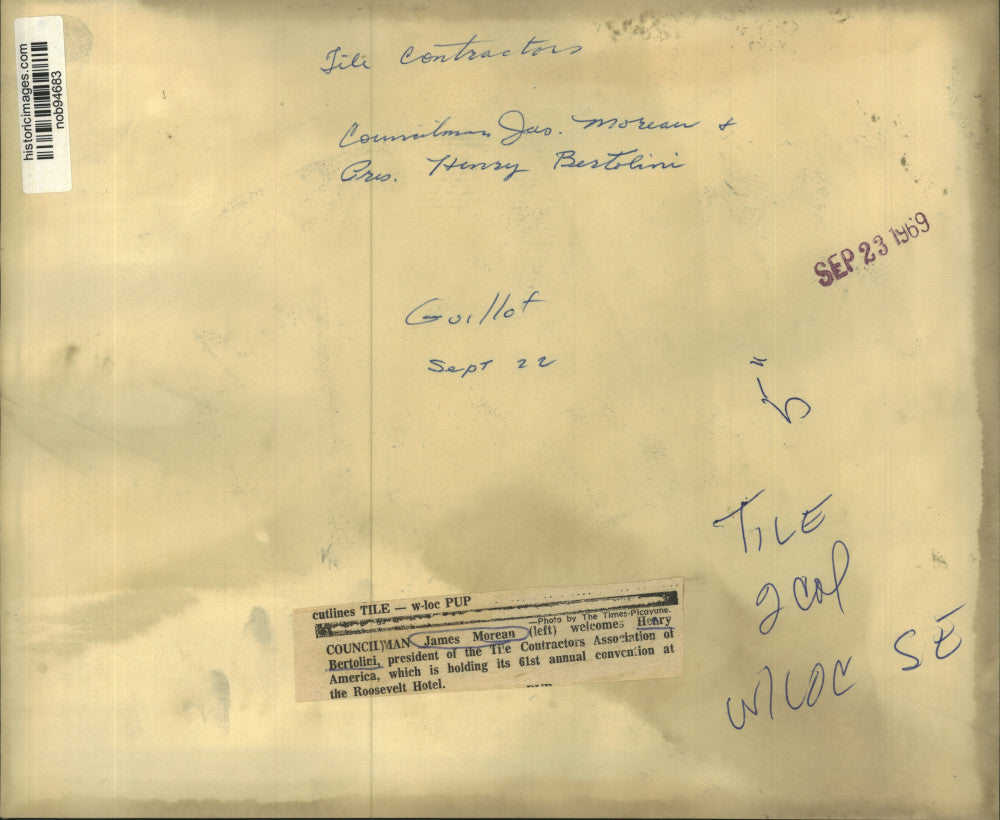 historicimages.com
nob94683
Tile Contractors
Councilman Jas. Moreau &
Pres. Henry Bertolini
SEP 23 1969
Guillot
Sept 22
5"
TILE
2 col
w/loc SE
cutlines TILE — w-loc PUP
—Photo by The Times-Picayune.
COUNCILMAN James Moreau (left) welcomes Henry
Bertolini, president of the Tile Contractors Association of
America, which is holding its 61st annual convention at
the Roosevelt Hotel.